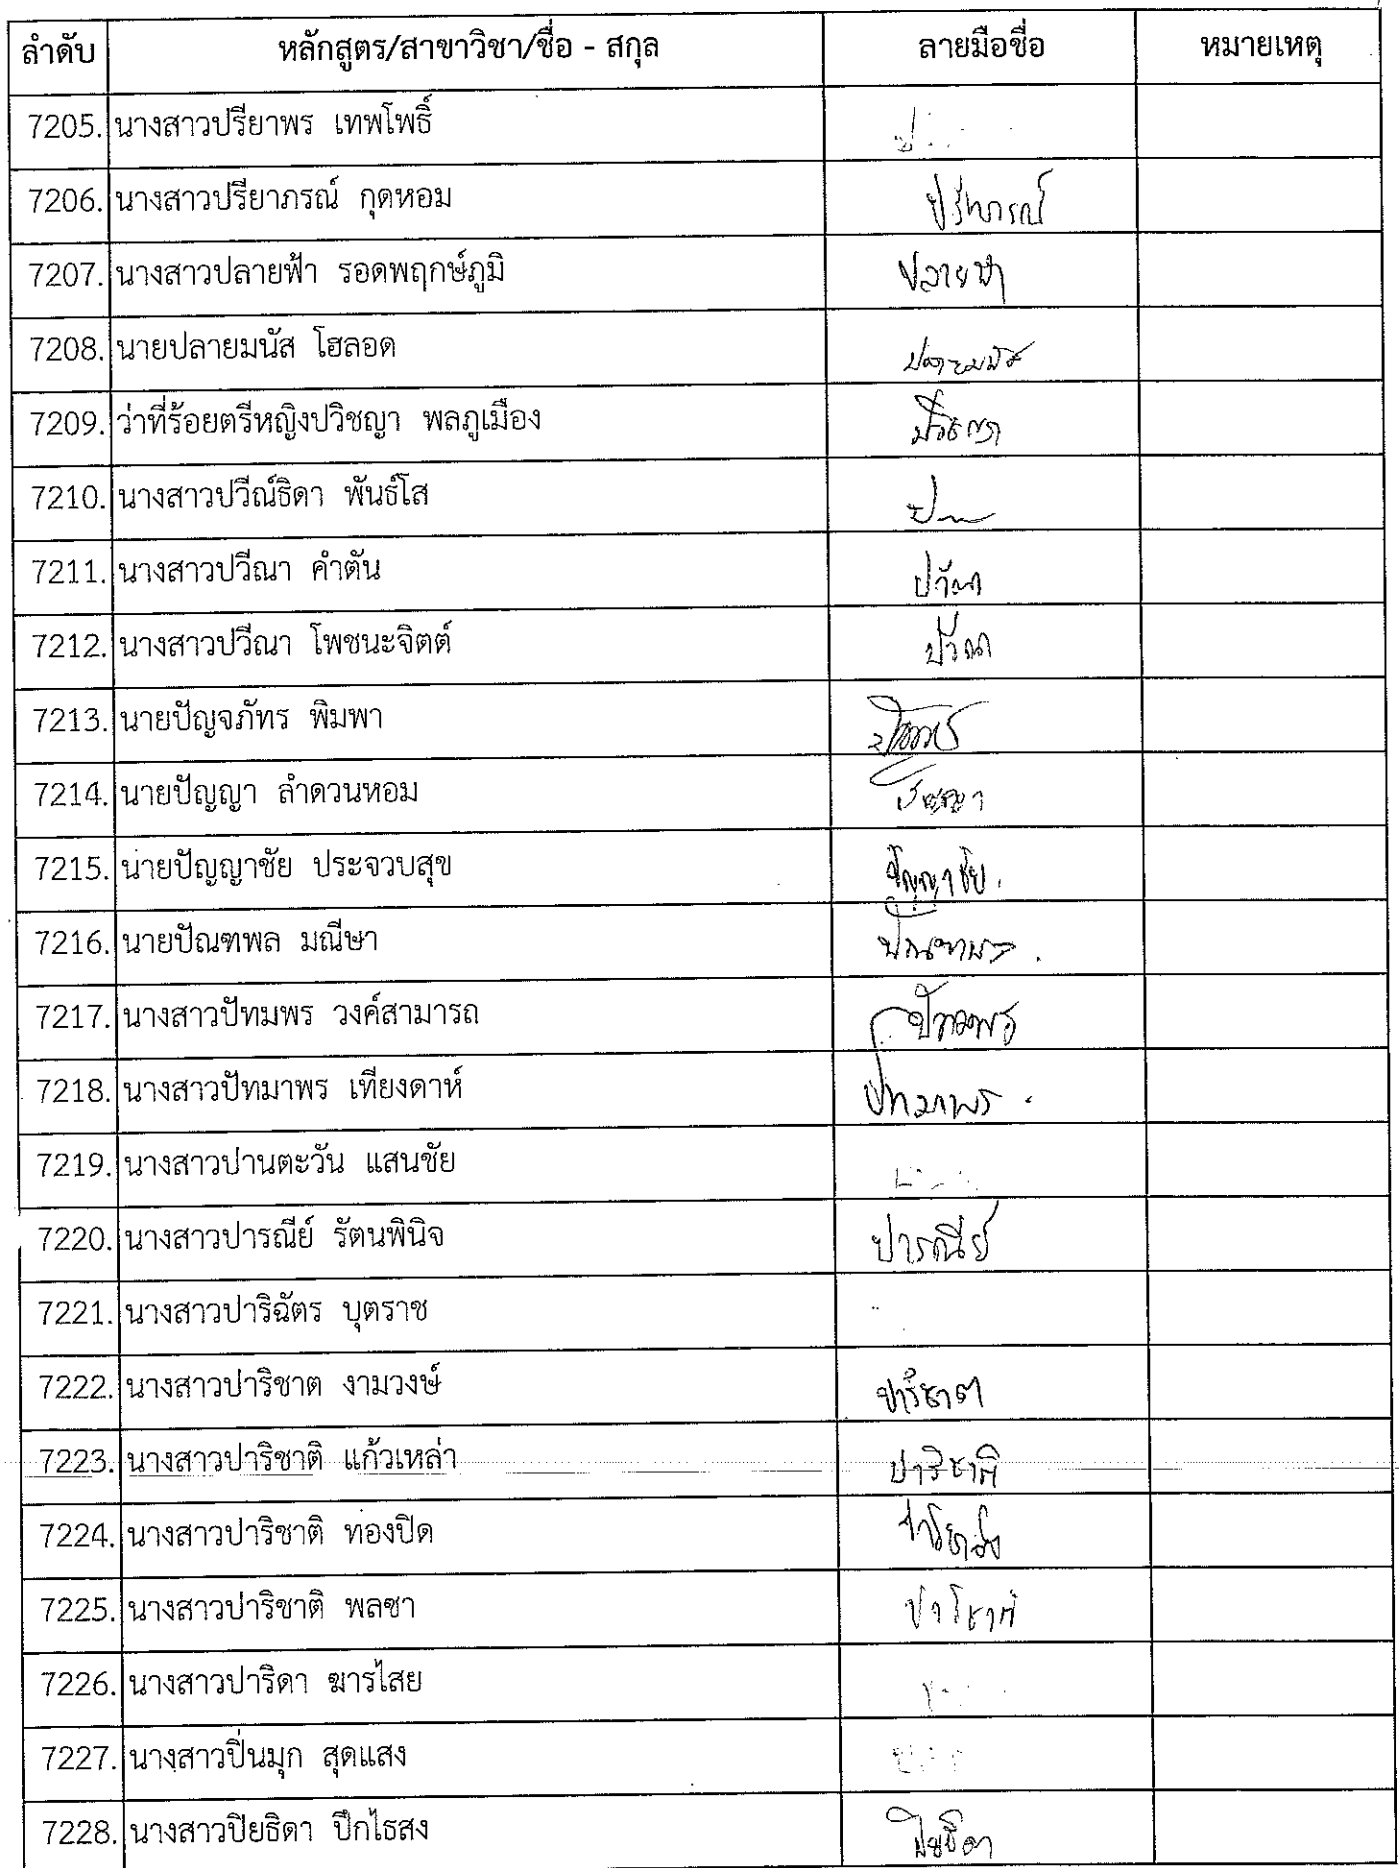 ลำดับ หลักสูตร/สาขาวิชา/ชื่อ - สกุล ลายมือชื่อ หมายเหตุ
7205. นางสาวปรียาพร เทพโพธิ์
7206. นางสาวปรียาภรณ์ กุดหอม ปรียาภรณ์
7207. นางสาวปลายฟ้า รอดพฤกษ์ภูมิ ปลายฟ้า
7208. นายปลายมนัส โฮลอด ปลายมนัส
7209. ว่าที่ร้อยตรีหญิงปวิชญา พลภูเมือง ปวิชญา
7210. นางสาวปวีณ์ธิดา พันธ์โส
7211. นางสาวปวีณา คำตัน ปวีณา
7212. นางสาวปวีณา โพชนะจิตต์ ปวีณา
7213. นายปัญจภัทร พิมพา
7214. นายปัญญา ลำดวนหอม ปัญญา
7215. นายปัญญาชัย ประจวบสุข ปัญญาชัย
7216. นายปัณฑพล มณีษา ปัณฑพล
7217. นางสาวปัทมพร วงค์สามารถ ปัทมพร
7218. นางสาวปัทมาพร เทียงดาห์ ปัทมาพร
7219. นางสาวปานตะวัน แสนชัย
7220. นางสาวปารณีย์ รัตนพินิจ ปารณีย์
7221. นางสาวปาริฉัตร บุตราช
7222. นางสาวปาริชาต งามวงษ์ ปาริชาต
7223. นางสาวปาริชาติ แก้วเหล่า ปาริชาติ
7224. นางสาวปาริชาติ ทองปิด
7225. นางสาวปาริชาติ พลซา ปาริชาติ
7226. นางสาวปาริดา ฆารไสย
7227. นางสาวปิ่นมุก สุดแสง
7228. นางสาวปิยธิดา ปึกไธสง ปิยธิดา